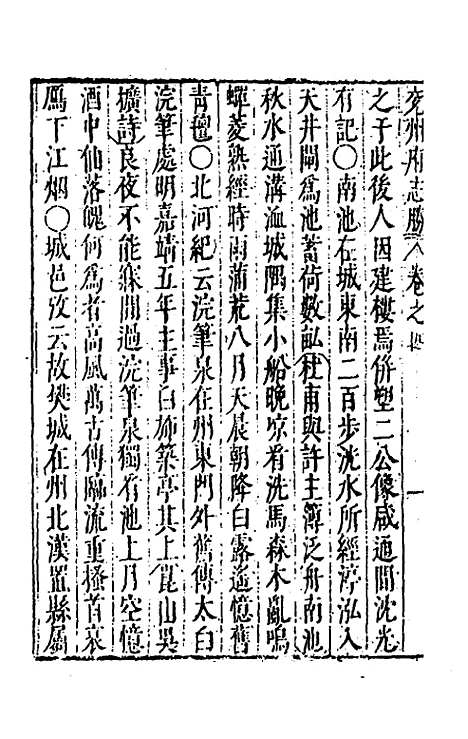 兖州府志勝 卷之四 一
之于此後人因建樓焉併塑二公像咸通間沈光
有記○南池在城東南二百步洸水所經渟泓入
天井閘爲池蓄荷數畝杜甫與許主簿泛舟南池
秋水通溝洫城隅集小船晚凉看洗馬森木亂鳴
蟬菱熟經時雨蒲荒八月天晨朝降白露遥憶舊
青氊○北河紀云浣筆泉在州東門外舊傳太白
浣筆處明嘉靖五年主事白斾築亭其上崑山吳
擴詩良夜不能寐閒過浣筆泉獨看池上月空憶
酒中仙落魄何爲者高風萬古傳臨流重搔首哀
鴈下江烟○城邑攷云故樊城在州北漢置縣屬